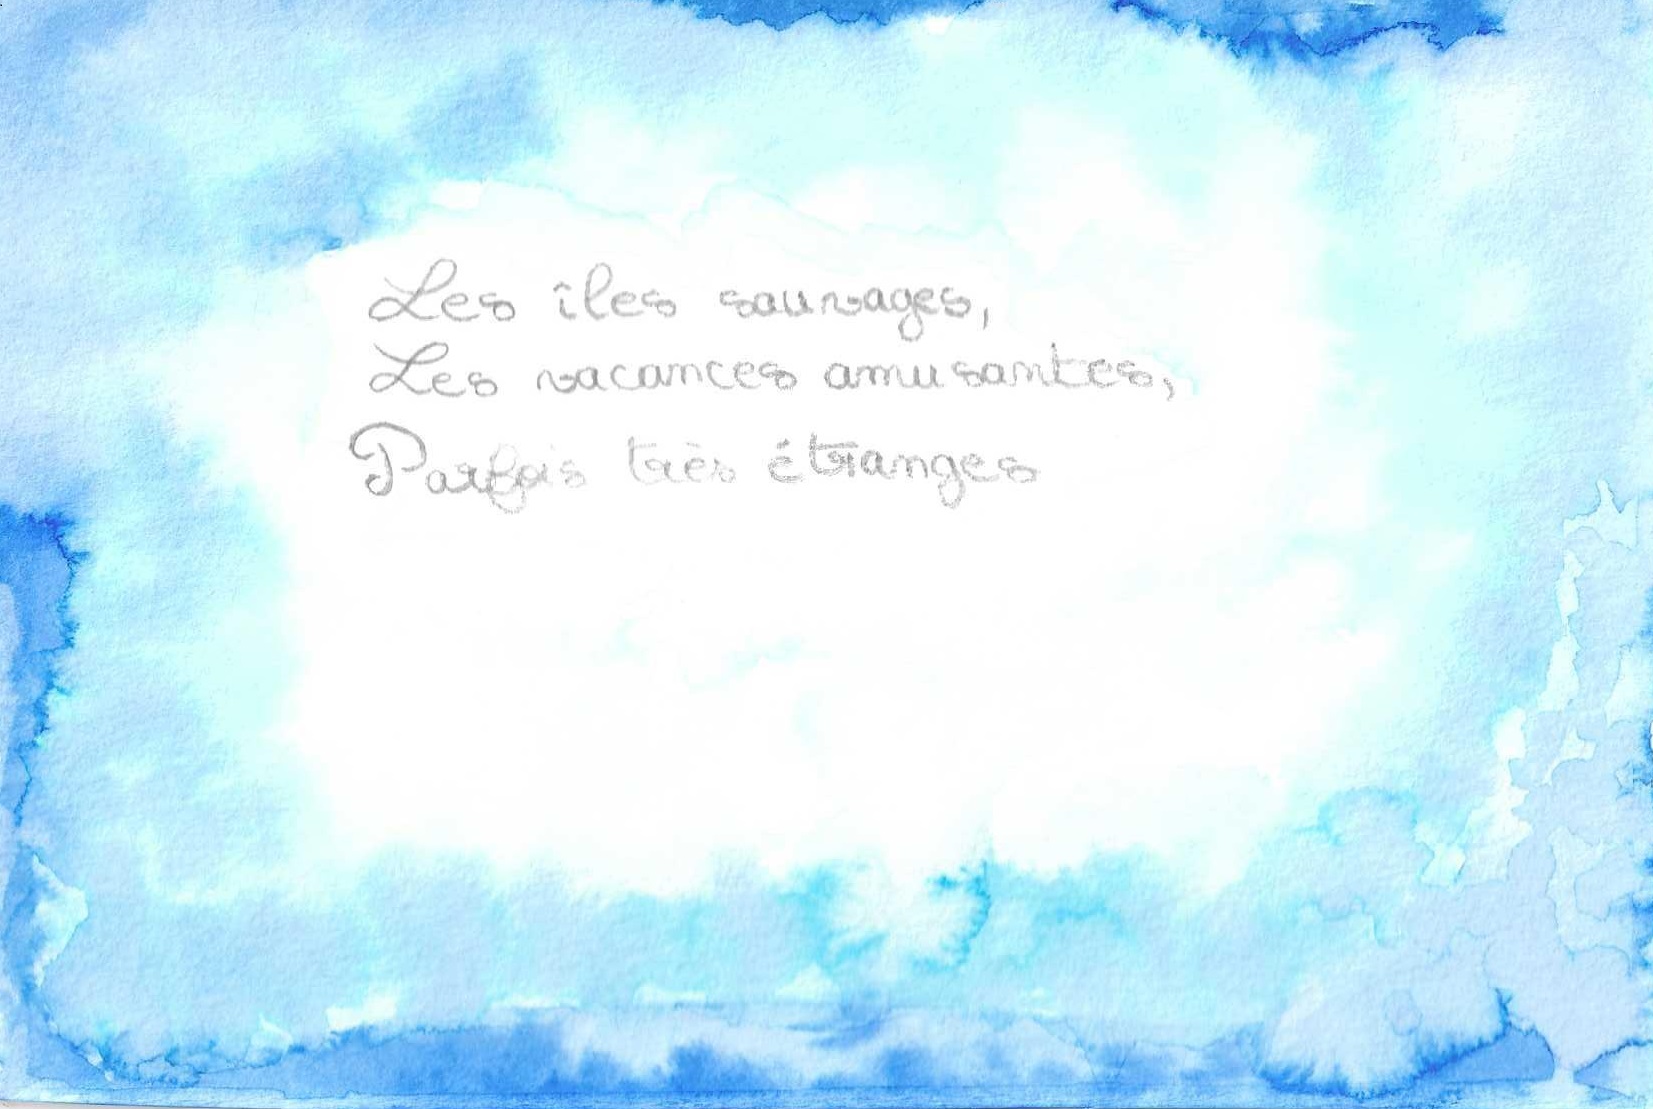 Les îles sauvages,
Les vacances amusantes,
Parfois très étranges